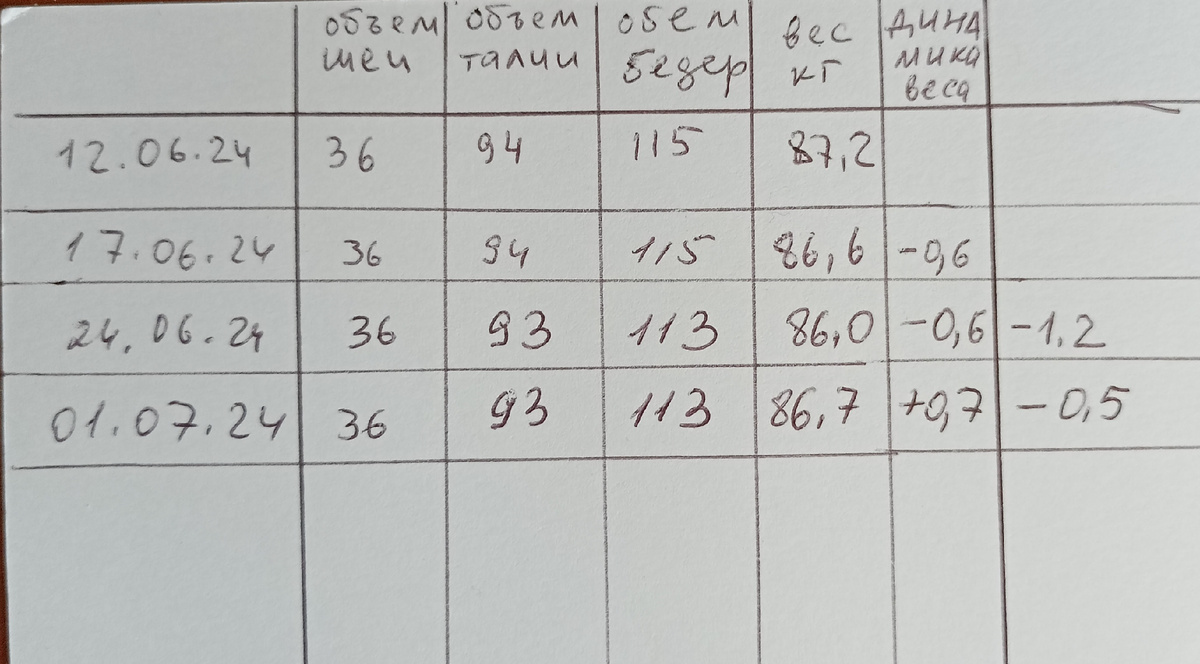 объем шеи объем талии обем бедер вес кг дина мика веса
12.06.24 36 94 115 87,2
17.06.24 36 94 115 86,6 -0,6
24.06.24 36 93 113 86,0 -0,6 -1.2
01.07.24 36 93 113 86,7 +0,7 -0,5